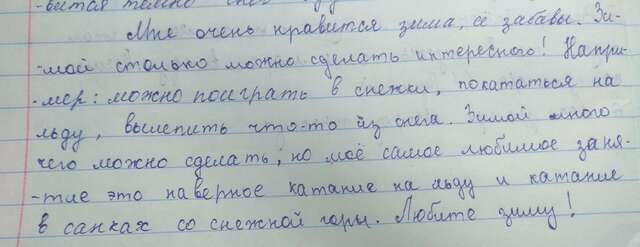 -битая
Мне очень нравится зима, её забавы. Зи-
-мой столько можно сделать интересного! Напри-
-мер: можно поиграть в снежки, покататься на
льду, вылепить что-то из снега. Зимой много
чего можно сделать, но моё самое любимое заня-
-тие это наверное катание на льду и катание
в санках со снежной горы. Любите зиму!